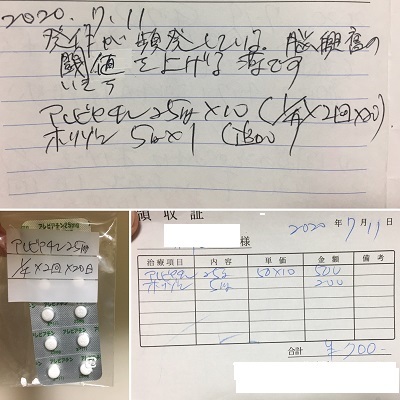 2020.7.11
発作が頻発している。脳興奮の
閾値を上げる薬です
いきち
アレビアチン25mg×10 (1/4×2回×20)
ホリゾン 5mg×1
アレビアチン25mg
アレビアチン25mg
1/4×2回×20日
領収証
様
2020年7月11日
治療項目 内容 単価 金額 備考
アレビアチン 25g 50×10 500
ホリゾン 5mg 200
合計 ¥700-